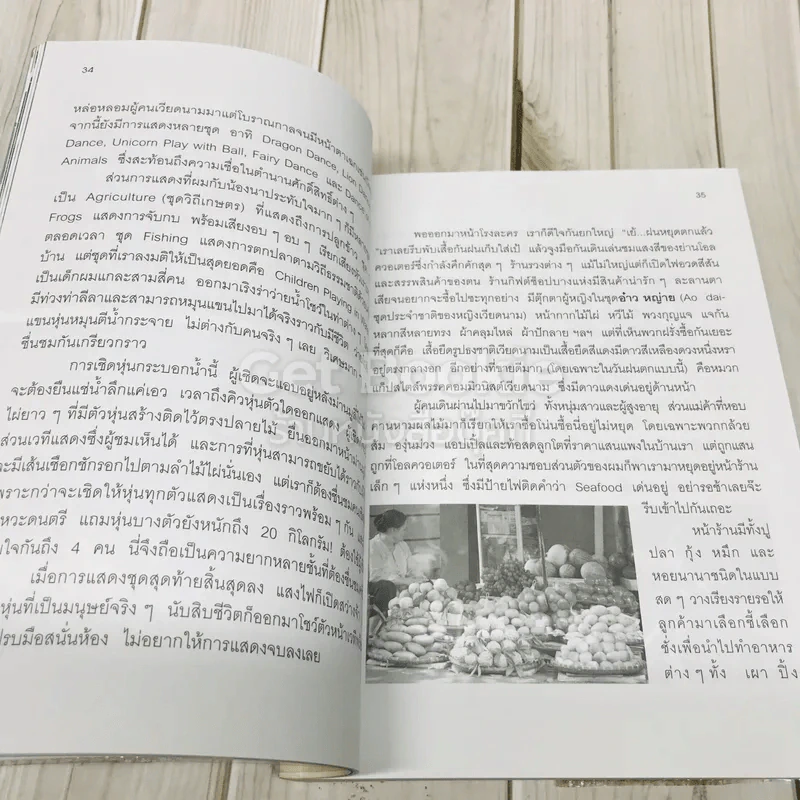 34
หล่อหลอมผู้คนเวียดนามมาแต่โบราณกาลจนมีหน้าตา
จากนี้ยังมีการแสดงหลายชุด อาทิ Dragon Dance, Lion
Dance, Unicorn Play with Ball, Fairy Dance และ Dance
Animals ซึ่งสะท้อนถึงความเชื่อในตำนานศักดิ์สิทธิ์ต่าง ๆ
ส่วนการแสดงที่ผมกับน้องนาประทับใจมาก ๆ ก็มี
เป็น Agriculture (ชุดวิถีเกษตร) ที่แสดงถึงการปลูกข้าว
Frogs แสดงการจับกบ พร้อมเสียงอบ ๆ อบ ๆ เรียกเสียง
ตลอดเวลา ชุด Fishing แสดงการตกปลาตามวิถีธรรมชาติ
บ้าน แต่ชุดที่เราลงมติให้เป็นสุดยอดคือ Children Playing in
เป็นเด็กผมแกละสามสี่คน ออกมาเริงร่าว่ายน้ำโชว์ในท่าต่าง ๆ
มีท่วงท่าลีลาและสามารถหมุนแขนไปมาได้จริงราวกับมีชีวิต
แขนหุ่นหมุนตีน้ำกระจาย ไม่ต่างกับคนจริง ๆ เลย วิเศษมาก
ชื่นชมกันเกรียวกราว
การเชิดหุ่นกระบอกน้ำนี้ ผู้เชิดจะแอบอยู่หลังม่าน
จะต้องยืนแช่น้ำลึกแค่เอว เวลาถึงคิวหุ่นตัวใดออกแสดง
ไผ่ยาว ๆ ที่มีตัวหุ่นสร้างติดไว้ตรงปลายไม้ ยื่นออกมาหน้า
ส่วนเวทีแสดงซึ่งผู้ชมเห็นได้ และการที่หุ่นสามารถขยับได้
จะมีเส้นเชือกชักรอกไปตามลำไม้ไผ่นั่นเอง แต่เราก็ต้องชื่นชม
เพราะกว่าจะเชิดให้หุ่นทุกตัวแสดงเป็นเรื่องราวพร้อม ๆ กัน
หวะดนตรี แถมหุ่นบางตัวยังหนักถึง 20 กิโลกรัม! ต้องใช้
ใจกันถึง 4 คน นี่จึงถือเป็นความยากหลายชั้นที่ต้องชื่นชม
เมื่อการแสดงชุดสุดท้ายสิ้นสุดลง แสงไฟก็เปิดสว่าง
หุ่นที่เป็นมนุษย์จริง ๆ นับสิบชีวิตก็ออกมาโชว์ตัวหน้าเวที
ปรบมือสนั่นห้อง ไม่อยากให้การแสดงจบลงเลย
35
พอออกมาหน้าโรงละคร เราก็ดีใจกันยกใหญ่ "เย้...ฝนหยุดตกแล้ว
"เราเลยรีบพับเสื้อกันฝนเก็บใส่เป้ แล้วจูงมือกันเดินเล่นชมแสงสีของย่านโอล
ควอเตอร์ซึ่งกำลังคึกคักสุด ๆ ร้านรวงต่าง ๆ แม้ไม่ใหญ่แต่ก็เปิดไฟอวดสีสัน
และสรรพสินค้าของตน ร้านกิฟต์ช็อปบางแห่งมีสินค้าน่ารัก ๆ ละลานตา
เสียจนอยากจะซื้อไปซะทุกอย่าง มีตุ๊กตาผู้หญิงในชุดอ๋าว หญ่าย (Ao dai-
ชุดประจำชาติของหญิงเวียดนาม) หน้ากากไม้ไผ่ หวีไม้ พวงกุญแจ แจกัน
หลากสีหลายทรง ผ้าคลุมไหล่ ผ้าปักลายฯลฯ แต่ที่เห็นพวกฝรั่งซื้อกันเยอะ
ที่สุดก็คือ เสื้อยืดรูปธงชาติเวียดนามเป็นเสื้อยืดสีแดงมีดาวสีเหลืองดวงหนึ่งหรา
อยู่ตรงกลางอก อีกอย่างที่ขายดีมาก (โดยเฉพาะในวันฝนตกแบบนี้) คือหมวก
แก๊ปสไตล์พรรคคอมมิวนิสต์เวียดนาม ซึ่งมีดาวแดงเด่นอยู่ด้านหน้า
ผู้คนเดินผ่านไปมาขวักไขว่ ทั้งหนุ่มสาวและผู้สูงอายุ ส่วนแม่ค้าที่หอบ
คานหามผลไม้มาก็เรียกให้เราซื้อโน่นซื้อนี่อยู่ไม่หยุด โดยเฉพาะพวกกล้วย
ส้ม องุ่นม่วง แอปเปิ้ลและท้อสดลูกโตที่ราคาแสนแพงในบ้านเรา แต่ถูกแสน
ถูกที่โอลควอเตอร์ ในที่สุดความชอบส่วนตัวของผมก็พาเรามาหยุดอยู่หน้าร้าน
เล็ก ๆ แห่งหนึ่ง ซึ่งมีป้ายไฟติดคำว่า Seafood เด่นอยู่ อย่ารอช้าเลยจ๊ะ
รีบเข้าไปกันเถอะ
หน้าร้านมีทั้งปู
ปลา กุ้ง หมึก และ
หอยนานาชนิดในแบบ
สด ๆ วางเรียงรายรอให้
ลูกค้ามาเลือกชี้เลือก
ชั่งเพื่อนำไปทำอาหาร
ต่าง ๆ ทั้ง เผา ปิ้ง